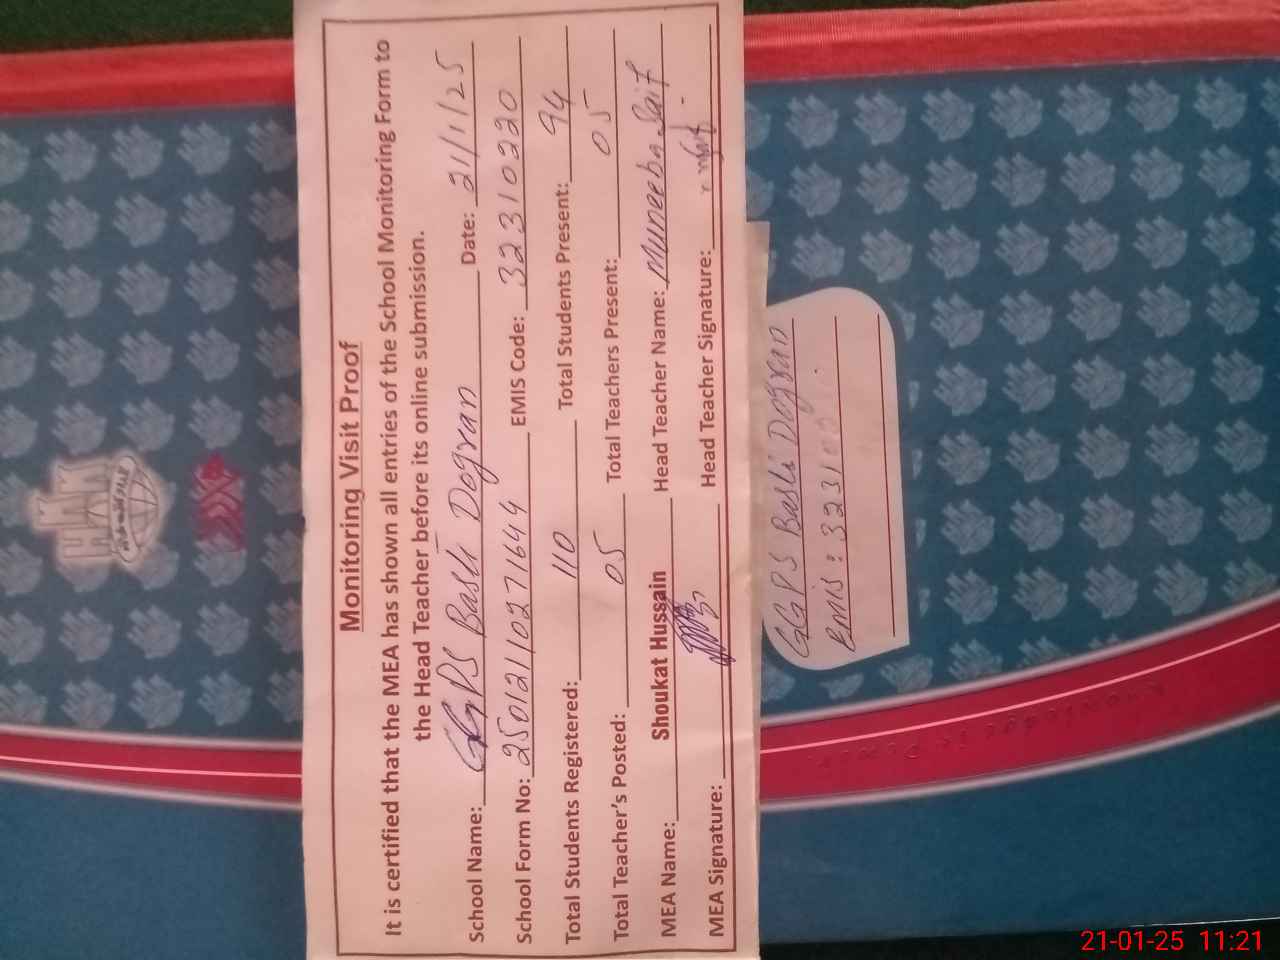 Monitoring Visit Proof
It is certified that the MEA has shown all entries of the School Monitoring Form to
the Head Teacher before its online submission.
School Name: GGPS Basti Dogran Date: 21/1/25
School Form No: 25012110271644 EMIS Code: 32310220
Total Students Registered: 110 Total Students Present: 94
Total Teacher's Posted: 05 Total Teachers Present: 05
MEA Name: Shoukat Hussain Head Teacher Name: Muneeba Saif
MEA Signature: Head Teacher Signature:
GGPS Basti Dogran
Emis : 3231
21-01-25 11:21